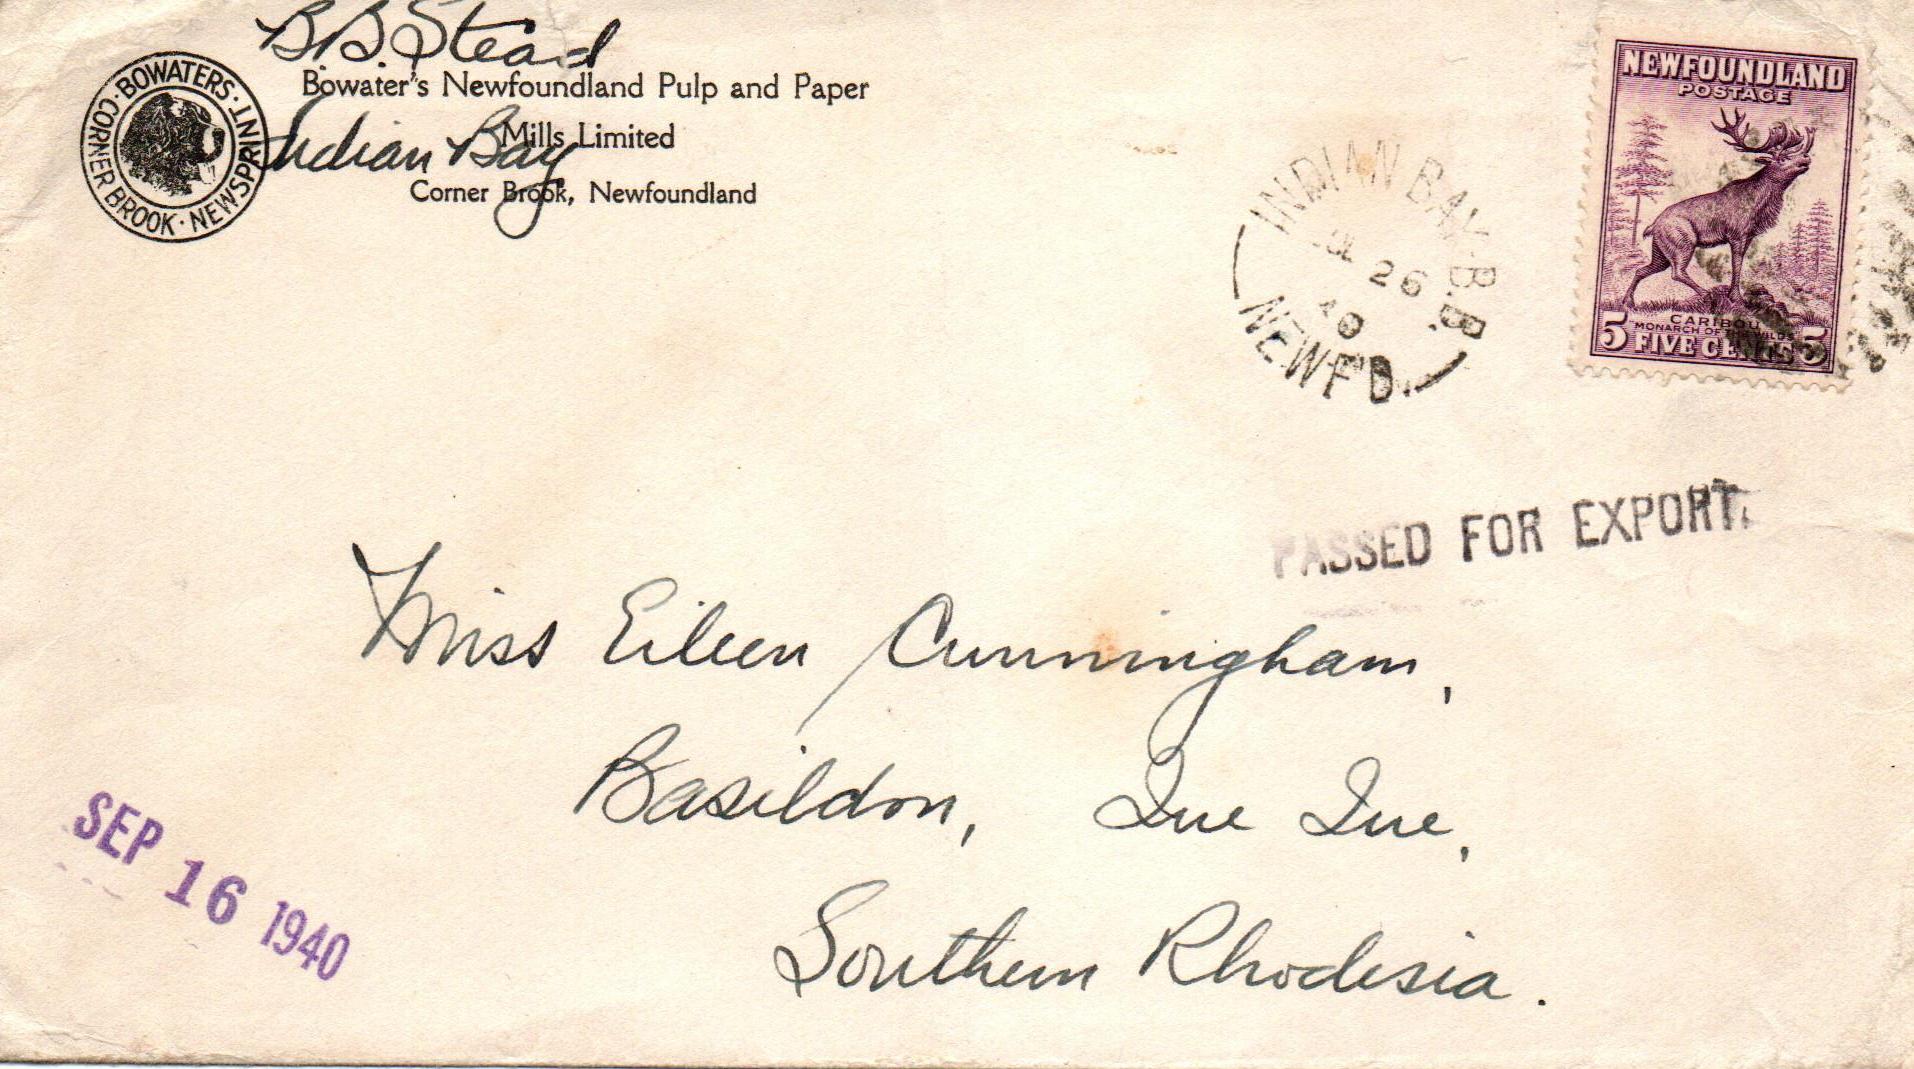 B.B. Stead
Bowater's Newfoundland Pulp and Paper
Mills Limited
Indian Bay
Corner Brook, Newfoundland
BOWATERS · NEWSPRINT · CORNER BROOK ·
INDIAN BAY. B.B.
JUL 26
40
NEWF'D.
NEWFOUNDLAND
POSTAGE
CARIBOU
MONARCH OF THE WILDS
5 FIVE CENTS 5
PASSED FOR EXPORT.
Miss Eileen Cunningham,
Basildon, Que Que,
Southern Rhodesia.
SEP 16 1940